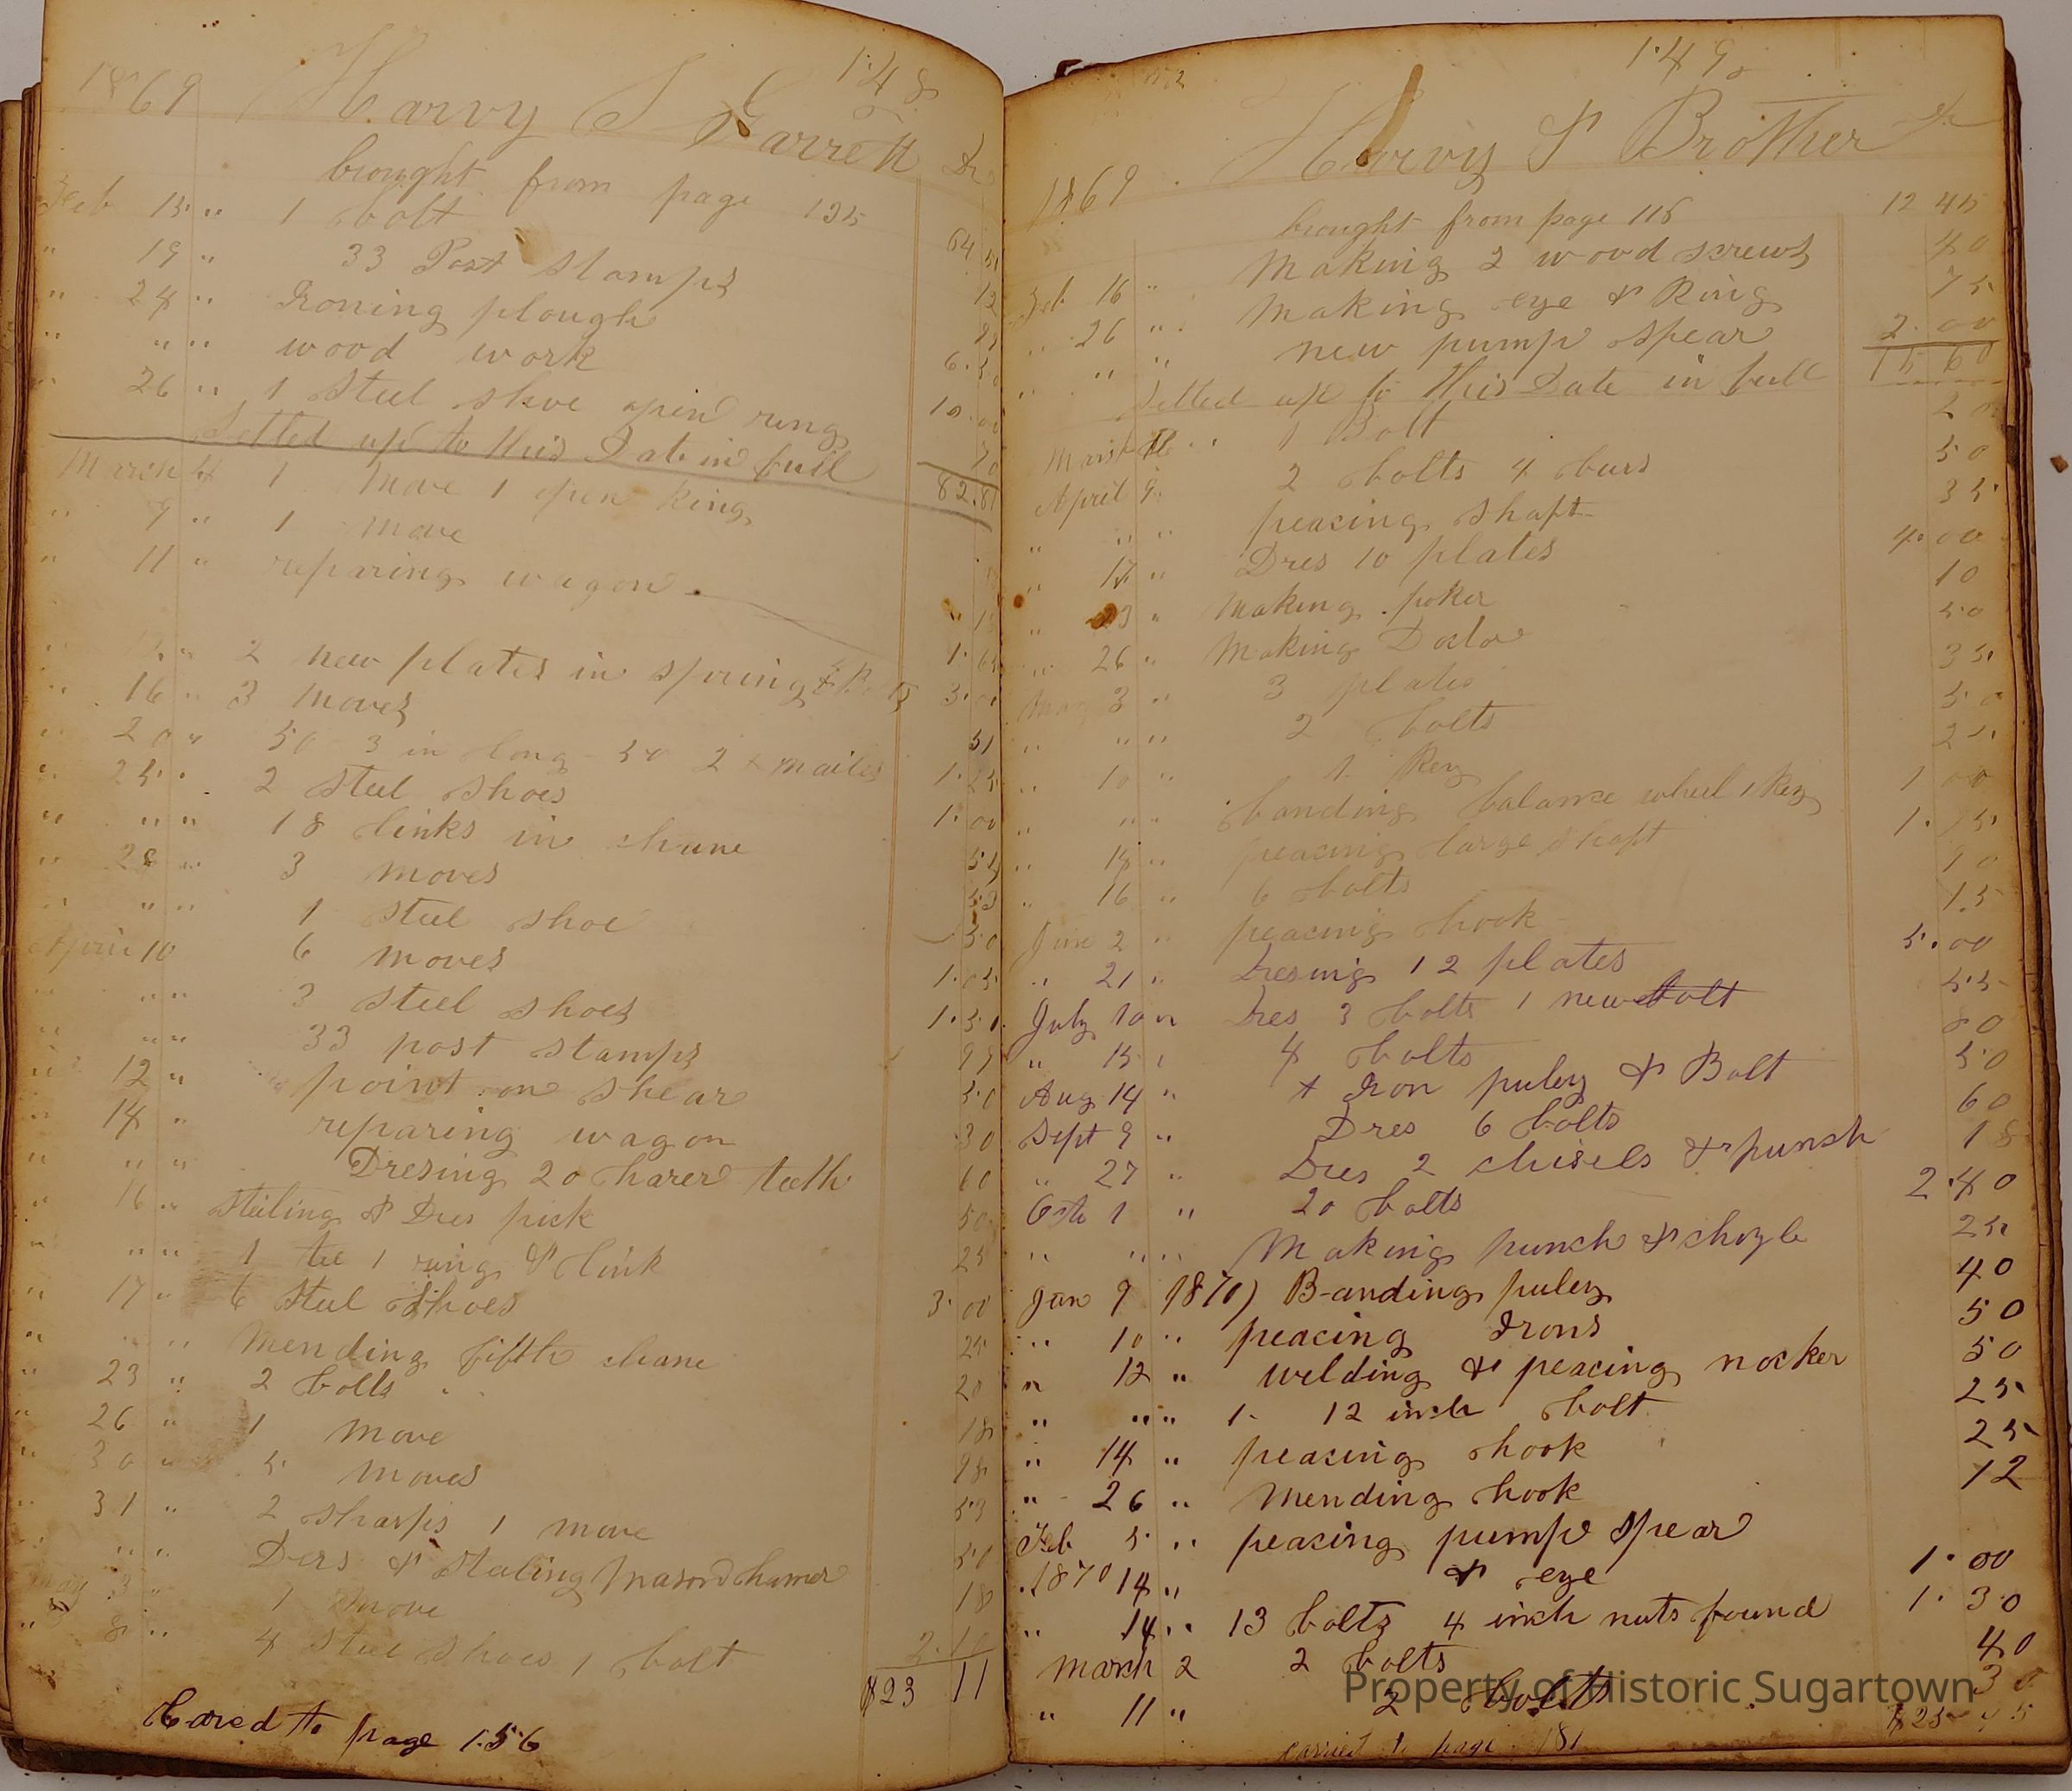 148
1869 Harvy S Garrett Dr
brought from page 125
Feb 15 " 1 bolt 64
" 19 " 33 Post stamps 12
" 24 " Ironing plough
" " " wood work 6.50
" 26 " 1 Steel shoe open ring 10.00
Setled up to this Date in full 70
March 4 1 move 1 open ring 82.81
" 9 " 1 move
" 11 " reparing wagon
" " 2 new plates in spring 1.
" 16 " 3 moves 3.00
" 20 " 50 3 in long 50 2 nailes 51
" 25 " 2 steel shoes 1.25
" " " 18 links in chane 1.00
" 28 " 3 moves 54
" " " 1 steel shoe 53
April 10 6 moves 50
" " " 3 steel shoes 1.05
" " " 33 post stamps 1.51
" 12 " point on shear 99
" 14 " reparing wagon 50
" " " Dresing 20 harer teeth 30
" 16 " steeling & Dres pick 60
" " " 1 tee 1 ring & link 50
" 17 " 6 steel shoes 25
" " " Mending fifth chane 3.00
" 23 " 2 bolts 25
" 26 " 1 move 20
" 30 " 5 moves 18
" 31 " 2 sharps 1 move 98
" " " Ders & steeling mason hamer 53
May 3 " 1 move 50
" 8 " 4 steel shoes 1 bolt 18
2.10
$23 11
Cared to page 156
149
1869 Harvy & Brother Dr
brought from page 116 12 45
Feb 16 " Making 2 wood screws 40
" 26 " Making eye & Ring 75
" " " new pump spear 2.00
Setled up to this Date in full 15 60
March " 1 Bolt 20
April 9 " 2 bolts 4 burs 50
" " " peacing shaft 35
" 17 " Dres 10 plates 4.00
" 23 " making poker 10
" 26 " Making 50
May 3 " 3 plates 35
" " " 2 bolts 50
" 10 " 1 Key 25
" " " banding balance wheel 1 Key 1 00
" 14 " peacing large shaft 1.75
" 16 " 6 bolts 90
June 2 " peacing hook 15
" 21 " Dresing 12 plates 5.00
July 10 " Dres 3 bolts 1 new bolt 55
" 15 " 4 bolts 80
Aug 14 " Iron puley & Bolt 50
Sept 9 " Dres 6 bolts 60
" 27 " Dres 2 chisels & punch 18
Octo 1 " 20 bolts 2.40
" " " Making punch & 25
Jan 9 1870) Banding puley 40
" 10 " peacing Irons 50
" 12 " welding & peacing nocker 50
" " " 1 12 inch bolt 25
" 14 " peacing hook 25
" 26 " Mending hook 12
Feb 5 " peacing pump spear
1870 14 " & eye 1.00
" 14 " 13 bolts 4 inch nuts found 1.30
March 2 2 bolts 40
" 11 " 2 bolts 30
$25 45
carried to page 181
Property of Historic Sugartown